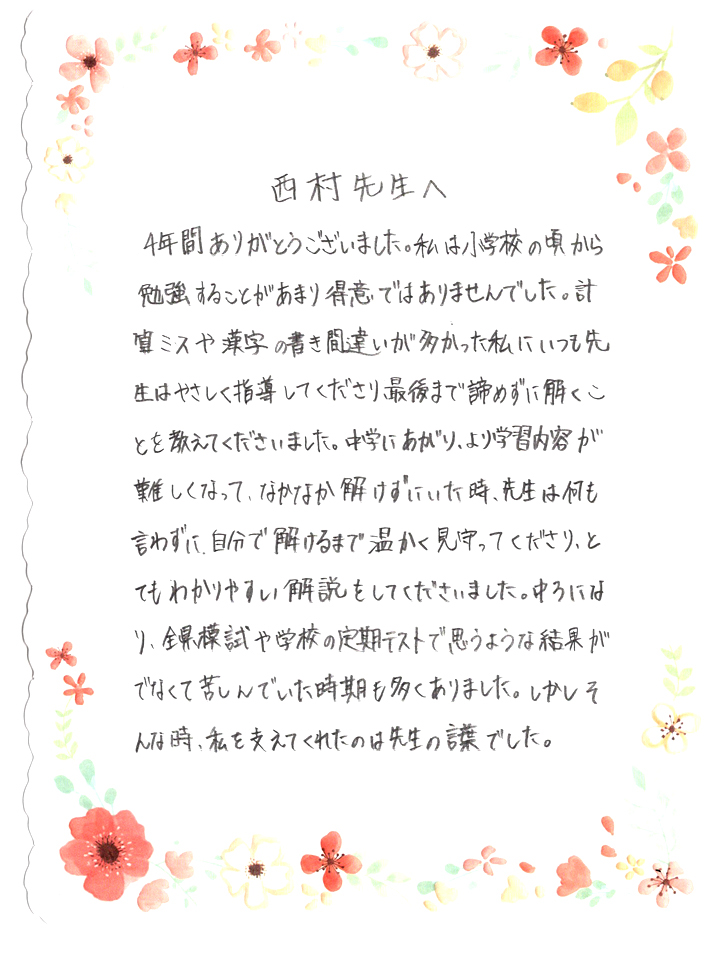 西村先生へ
4年間ありがとうございました。私は小学校の頃から
勉強することがあまり得意ではありませんでした。計
算ミスや漢字の書き間違いが多かった私にいつも先
生はやさしく指導してくださり、最後まで諦めずに解くこ
とを教えてくださいました。中学にあがり、より学習内容が
難しくなって、なかなか解けずにいた時、先生は何も
言わずに、自分で解けるまで温かく見守ってくださり、と
てもわかりやすい解説をしてくださいました。中3にな
り、全県模試や学校の定期テストで思うような結果が
でなくて苦しんでいた時期も多くありました。しかしそ
んな時、私を支えてくれたのは先生の言葉でした。